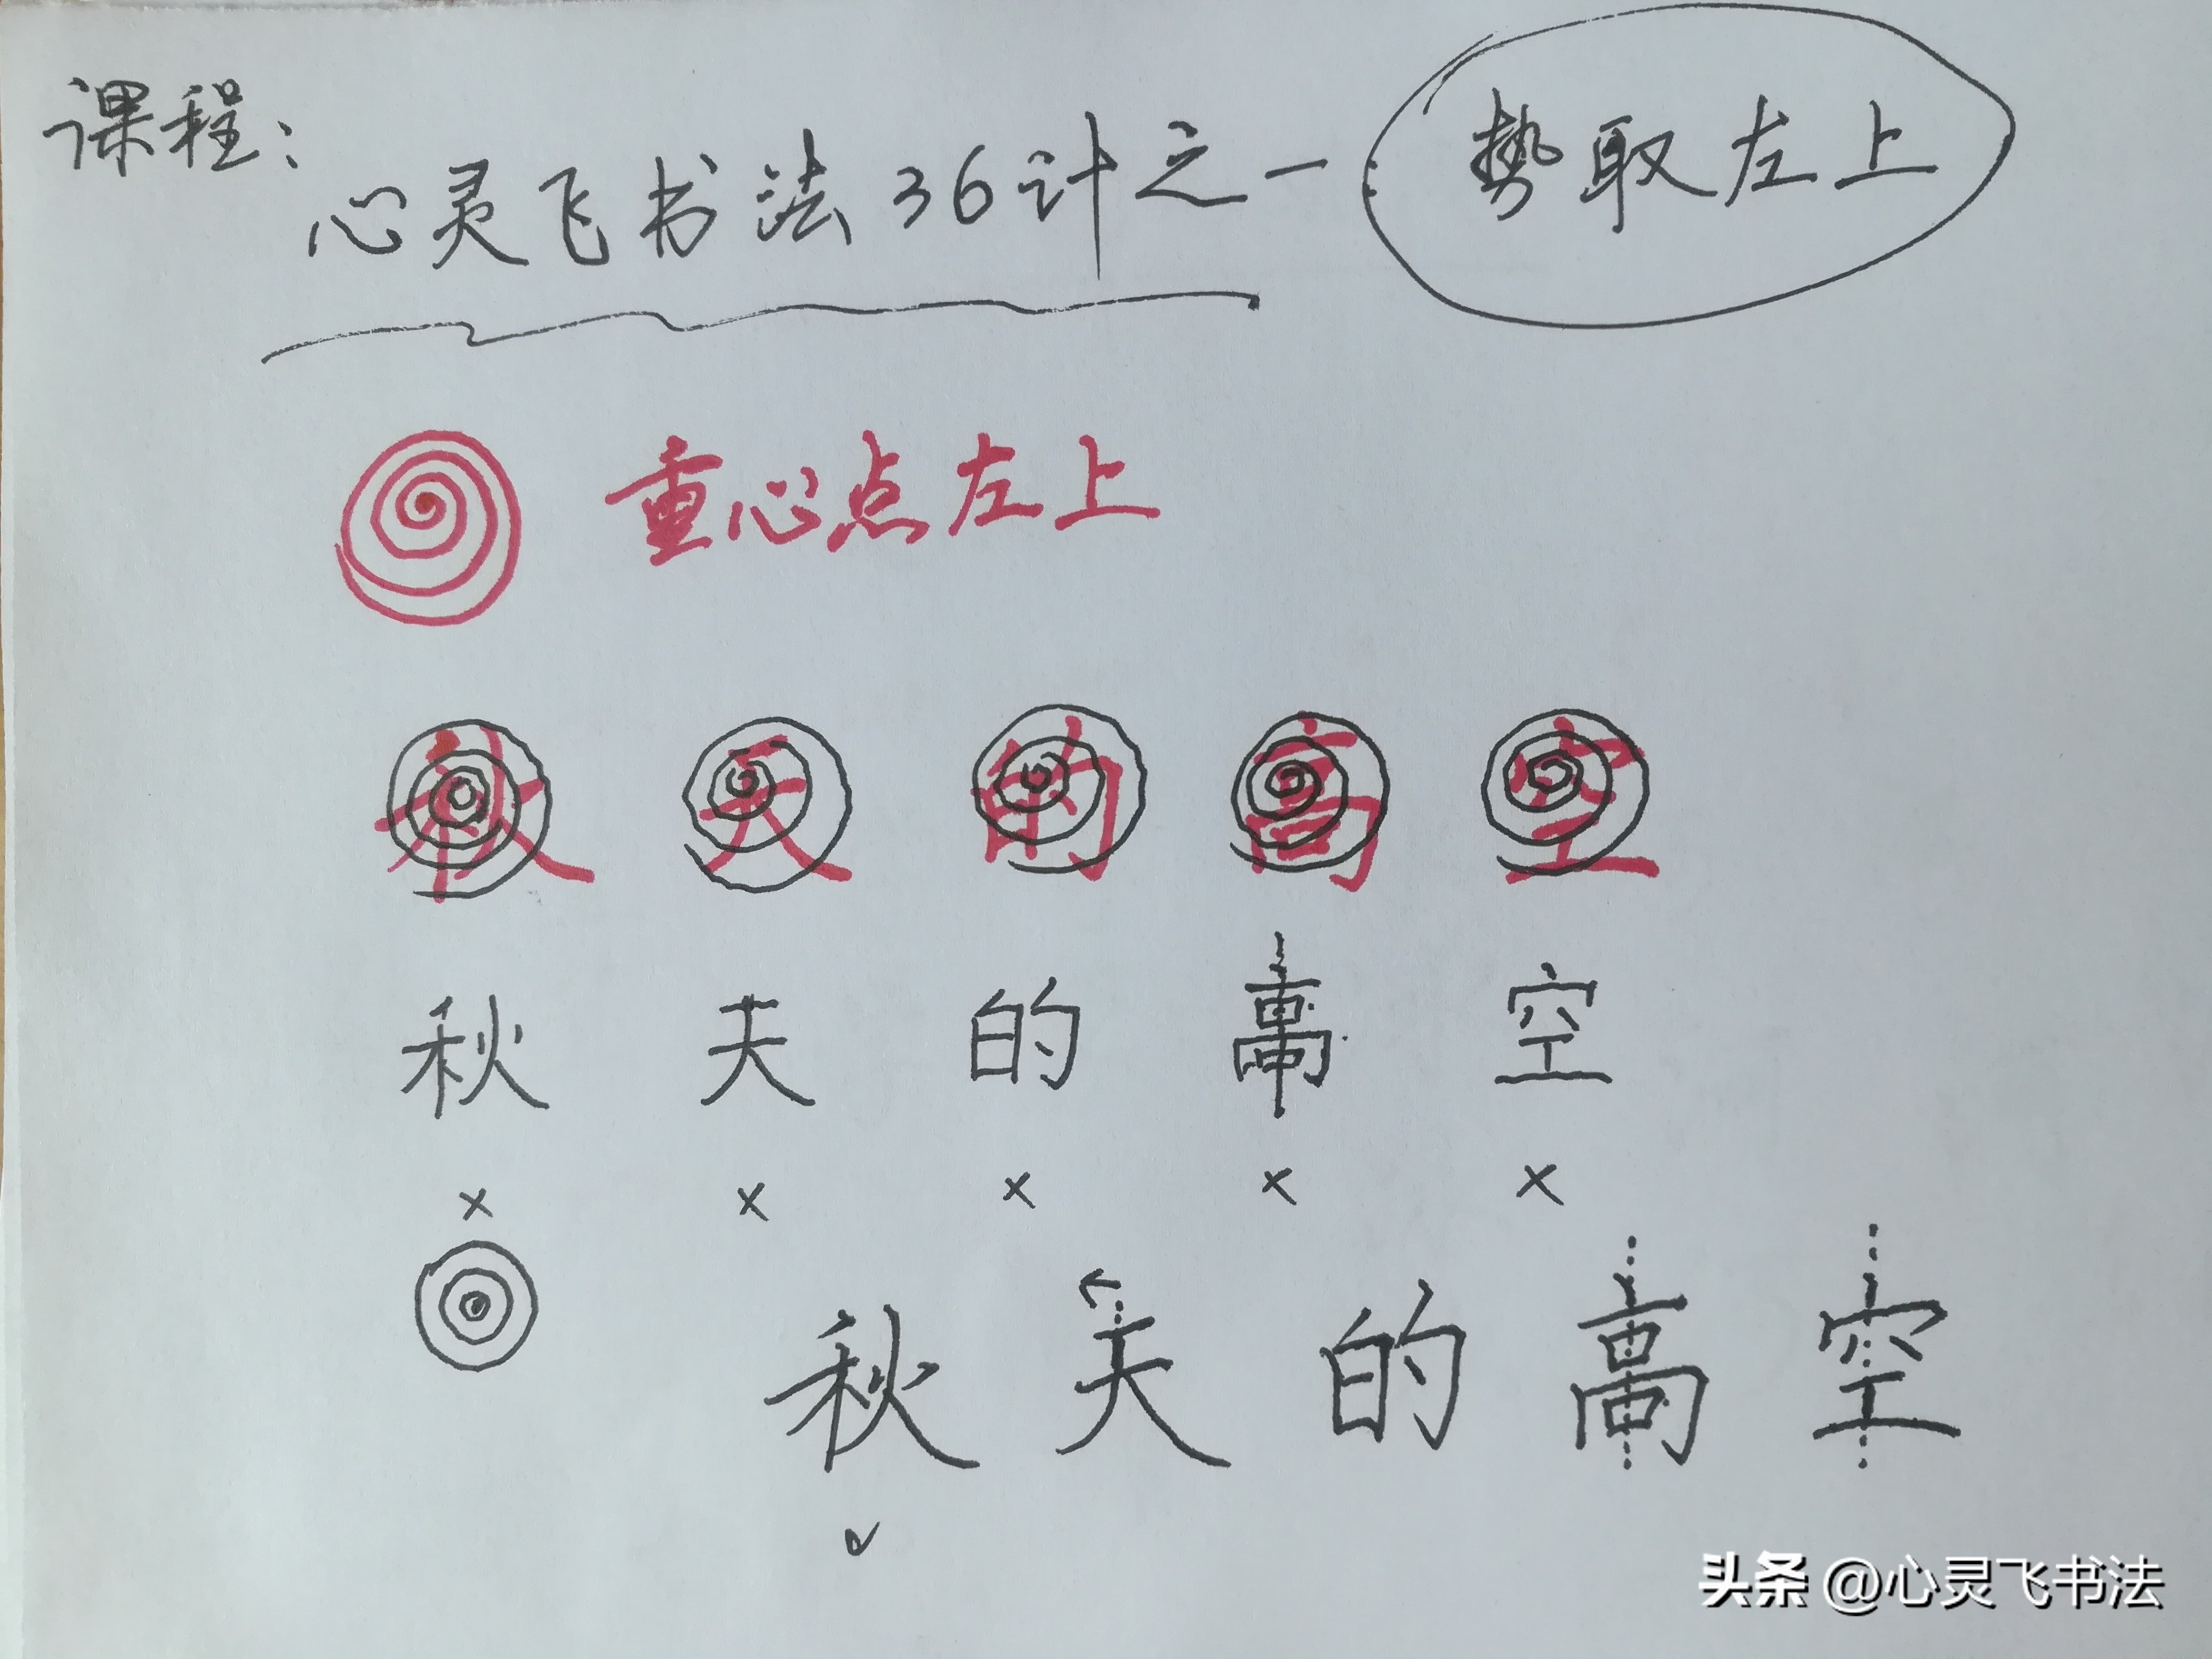 课程：
心灵飞书法36计之一：势取左上
重心点左上
秋天的高空
秋天的高空
× × × × ×
秋天的高空
✓
头条 @心灵飞书法